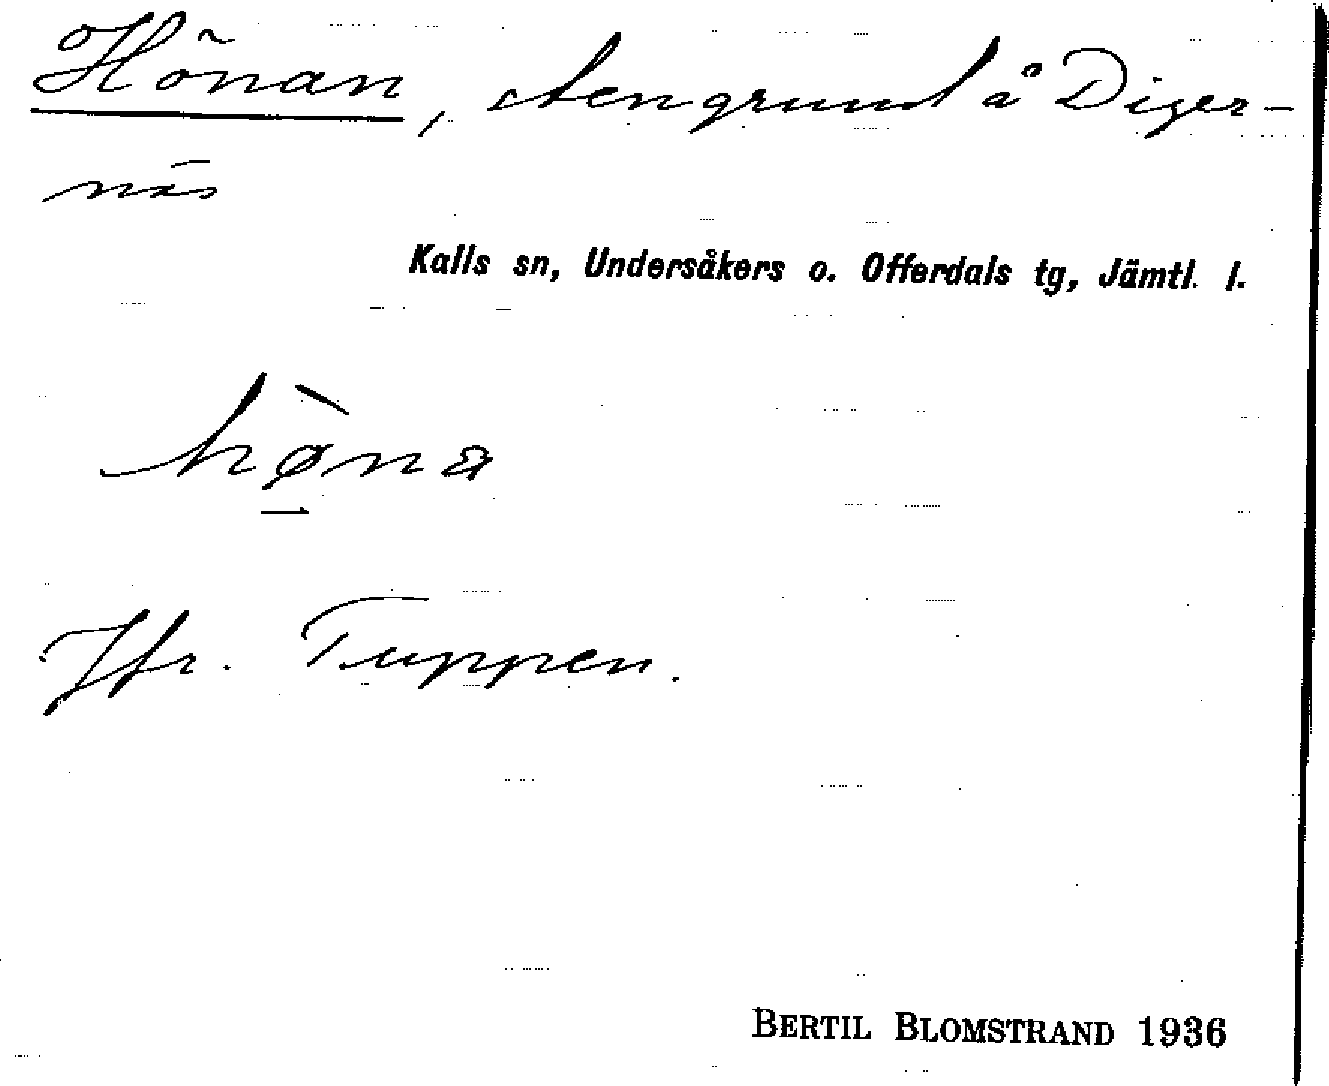 Hönan, stengrund å Diger-
näs
Kalls sn, Undersåkers o. Offerdals tg, Jämtl. l.
hø̀na
Jfr. Tuppen.
BERTIL BLOMSTRAND 1936